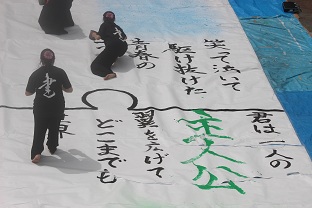 笑って泣いて
駆け抜けた
青春の
君は一人の
主人公
翼を広げて
どこまでも